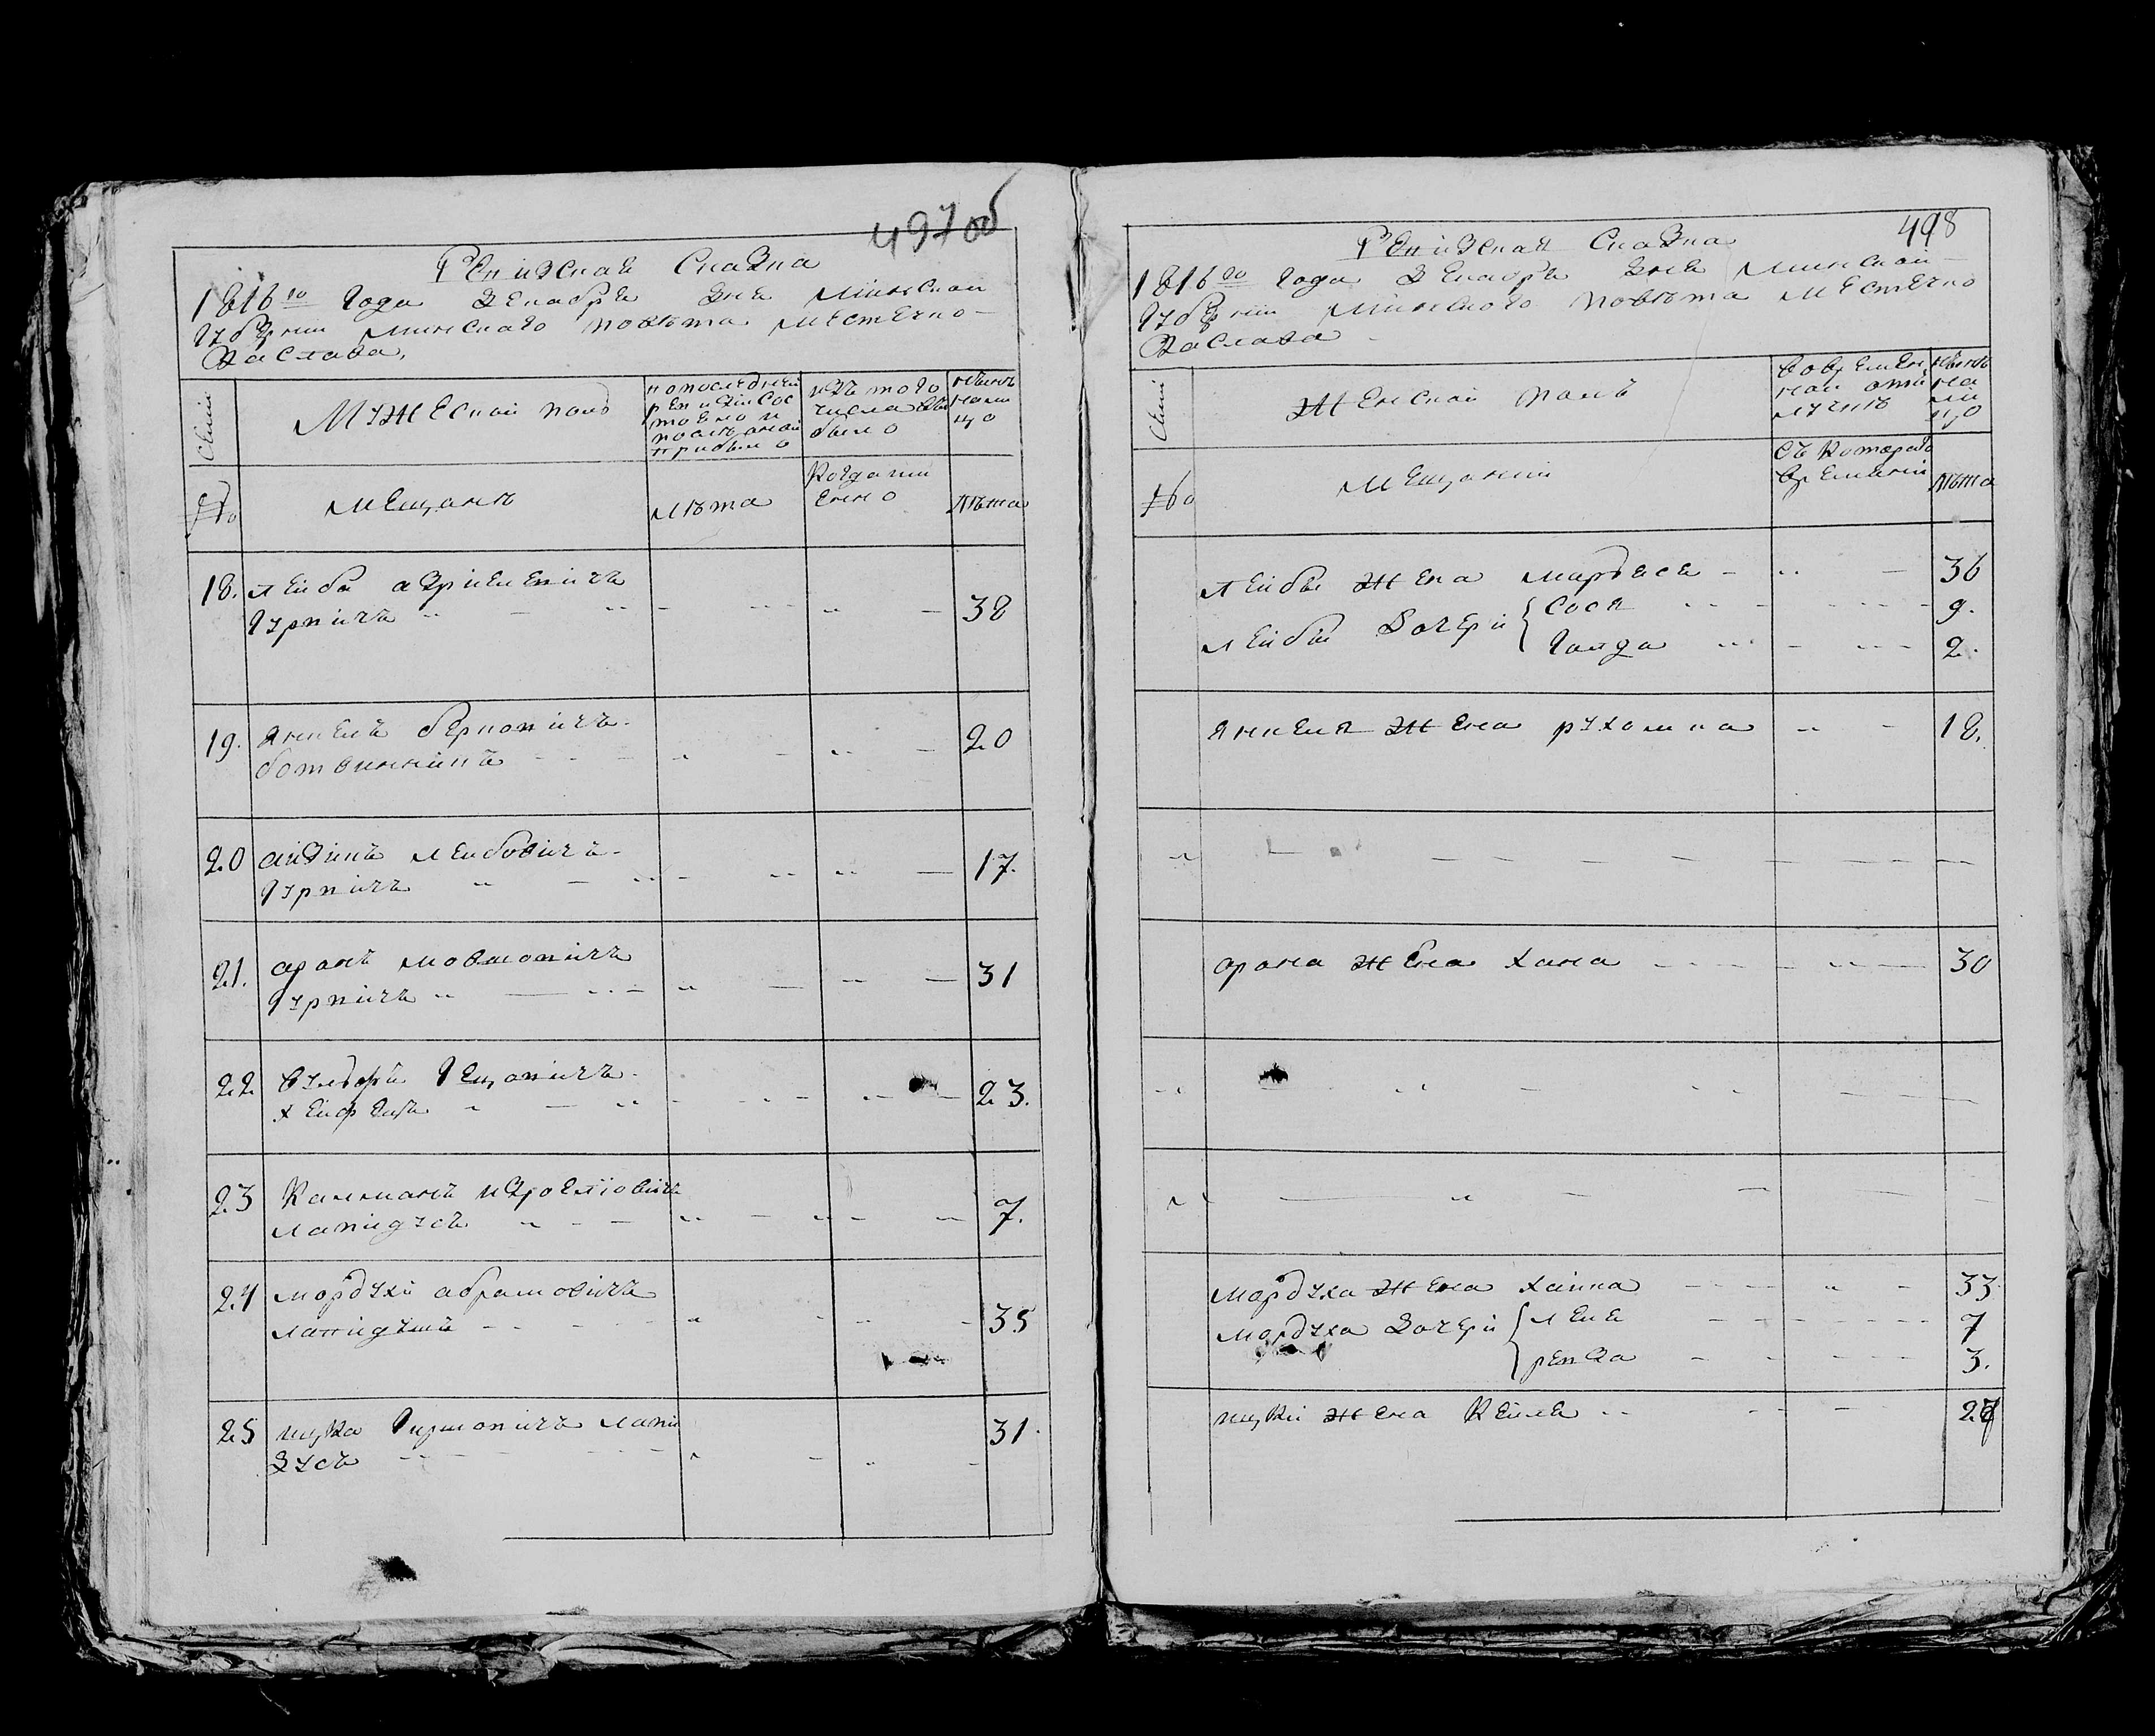 497 об
Ревизская Сказка
1816го Года Декабря дня Минской
Губернии Минского повѣта Местечко
Заслава,
Семьи
Мужеской полъ
по последней
ревизіи сос
тояло и
послѣ оной
прибыло
изъ того
числа вы
было
нынѣ
на ли
цо
№
Мещанѣ
лѣта
Когда имм
енно
лѣта
18. Лейба азриелевичъ
Гурвичъ 38
19. Янкель берковичъ
ботвинникъ 20
20 айзикъ Лейбовичъ
Гурвичъ 17.
21. аронъ мовшовичъ
Гурвичъ 31
22 Гецовичъ 23.
23 Калманъ израелiовичъ
лапидусъ 7.
24 мордухй абрамовичъ
лапидусъ 35
25 ицка Гиршовичъ лапи
дусъ 31.
498
Ревизская Сказка
1816го Года Декабря дня Минской
Губернии Минского повѣта Местечко
Заслава
Семьи
Женской полъ
Во времен
ной отл
учкѣ
нынѣ
на
ли
цо
№
Мещанки
Съ котораго
времяни
лѣта
Лейбы жена мардася 36
Лейбы дочери { Сося 9.
Голда 2.
Янкеля жена рухомка 18.
арона жена хана 30
мордуха жена хаика 33
мордуха дочери { лея 7
ревза 3.
ицки жена Кейля 27